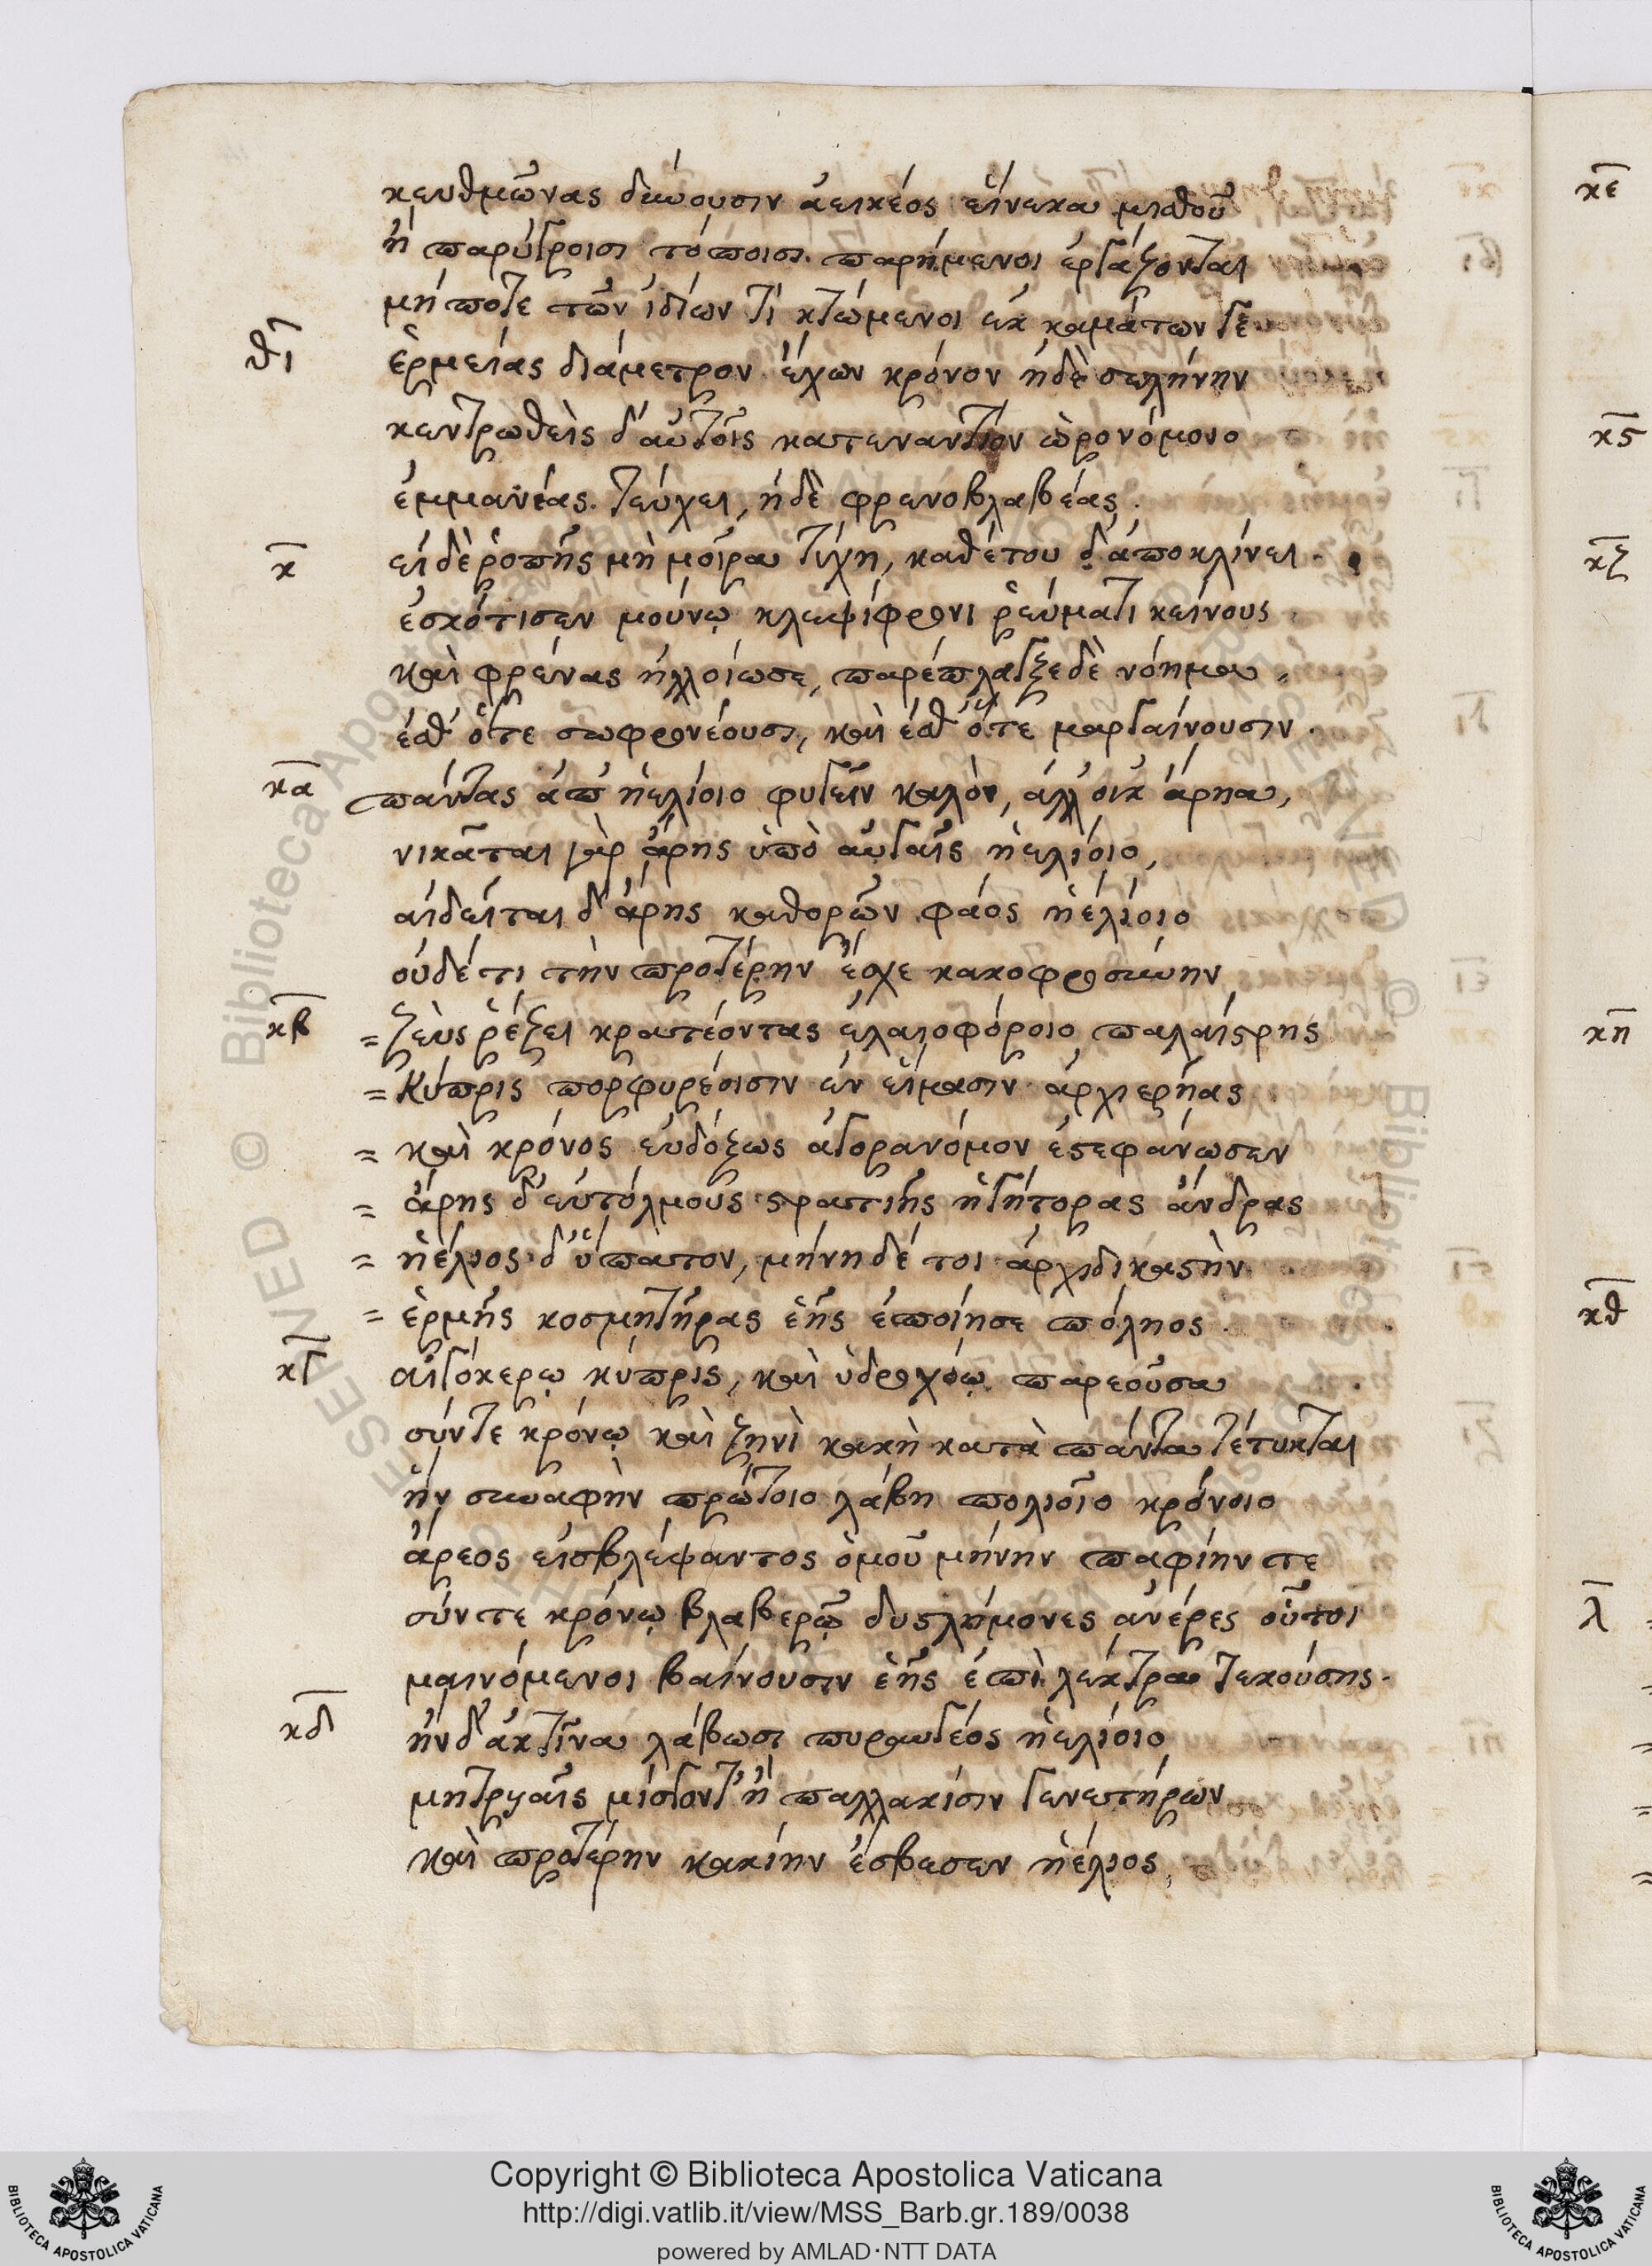 κευθμῶνας δύουσιν ἀεικέος εἵνεκα μισθοῦ
ἢ παρύγροισι τόποισι παρήμενοι ἐργάζονται
μή ποτε τῶν ἰδίων τί κτώμενοι ἐκ καμάτων γε
θι ἑρμείας διάμετρον ἔχων κρόνον ἠδὲ σελήνην
κεντρωθεὶς δ' αὐτοῖς κατεναντίον ὡρονόμοιο
ἐμμανέας τεύχει, ἠδὲ φρενοβλαβέας.
κ εἰ δὲ ῥοπῆς μὴ μοῖρα τύχη, καθέτου δ' ἀποκλίνει.
ἐσκότισεν μούνῳ κλεψίφρονι ῥεύματι κείνους
καὶ φρένας ἠλλοίωσε, παρέπλαγξε δὲ νόημα,
ἔσθ' ὅτε σωφρονέουσι, καὶ ἔσθ' ὅτε μαργαίνουσιν.
κα πάντας ἀπ' ἠελίοιο φυγεῖν καλὸν, ἀλλ' οὐκ ἄρηα,
νικᾶται γὰρ ἄρης ὑπὸ αὐγαῖς ἠελίοιο,
αἰδεῖται δ' ἄρης καθορῶν φάος ἠελίοιο
οὐδέ τι τὴν προτέρην ἔσχε κακοφροσύνην
κβ = ζεὺς ῥέζει κρατέοντας ἐλαιοφόροιο παλαίστρης
= κύπρις πορφυρέοισιν ἐν εἵμασιν ἀρχιερῆας
= καὶ κρόνος εὐδόξως ἀγορανόμον ἐστεφάνωσεν
= ἄρης δ' εὐτόλμους στρατιῆς ἡγήτορας ἄνδρας
= ἠέλιος δ' ὕπατον, μήνη δέ τοι ἀρχιδικαστὴν
= ἑρμῆς κοσμητῆρας ἑῆς ἐποίησε πόληος.
κγ αἰγόκερῳ κύπρις, καὶ ὑδροχόῳ παρεοῦσα
σύν τε κρόνῳ καὶ ζηνὶ κακὴ κατὰ πάντα τέτυκται
ἢν συναφὴν πρώτοιο λάβη πολιοῖο κρόνοιο
ἄρεος εἰσβλέψαντος ὁμοῦ μήνην παφίην τε
σύν τε κρόνῳ βλαβερῷ δυστλήμονες ἀνέρες οὗτοι
μαινόμενοι βαίνουσιν ἑῆς ἐπὶ λέκτρα τεκούσης.
κδ ἢν δ' ἀκτῖνα λάβωσι πυραυγέος ἠελίοιο
μητρυαῖς μίσγοντ' ἢ παλλακίσιν γενετήρων
καὶ προτέρην κακίην ἔσβεσεν ἠέλιος,
κε
κς
κζ
κη
κθ
λ
Copyright © Biblioteca Apostolica Vaticana
http://digi.vatlib.it/view/MSS_Barb.gr.189/0038
powered by AMLAD·NTT DATA
BIBLIOTECA APOSTOLICA VATICANA
BIBLIOTECA APOSTOLICA VATICANA